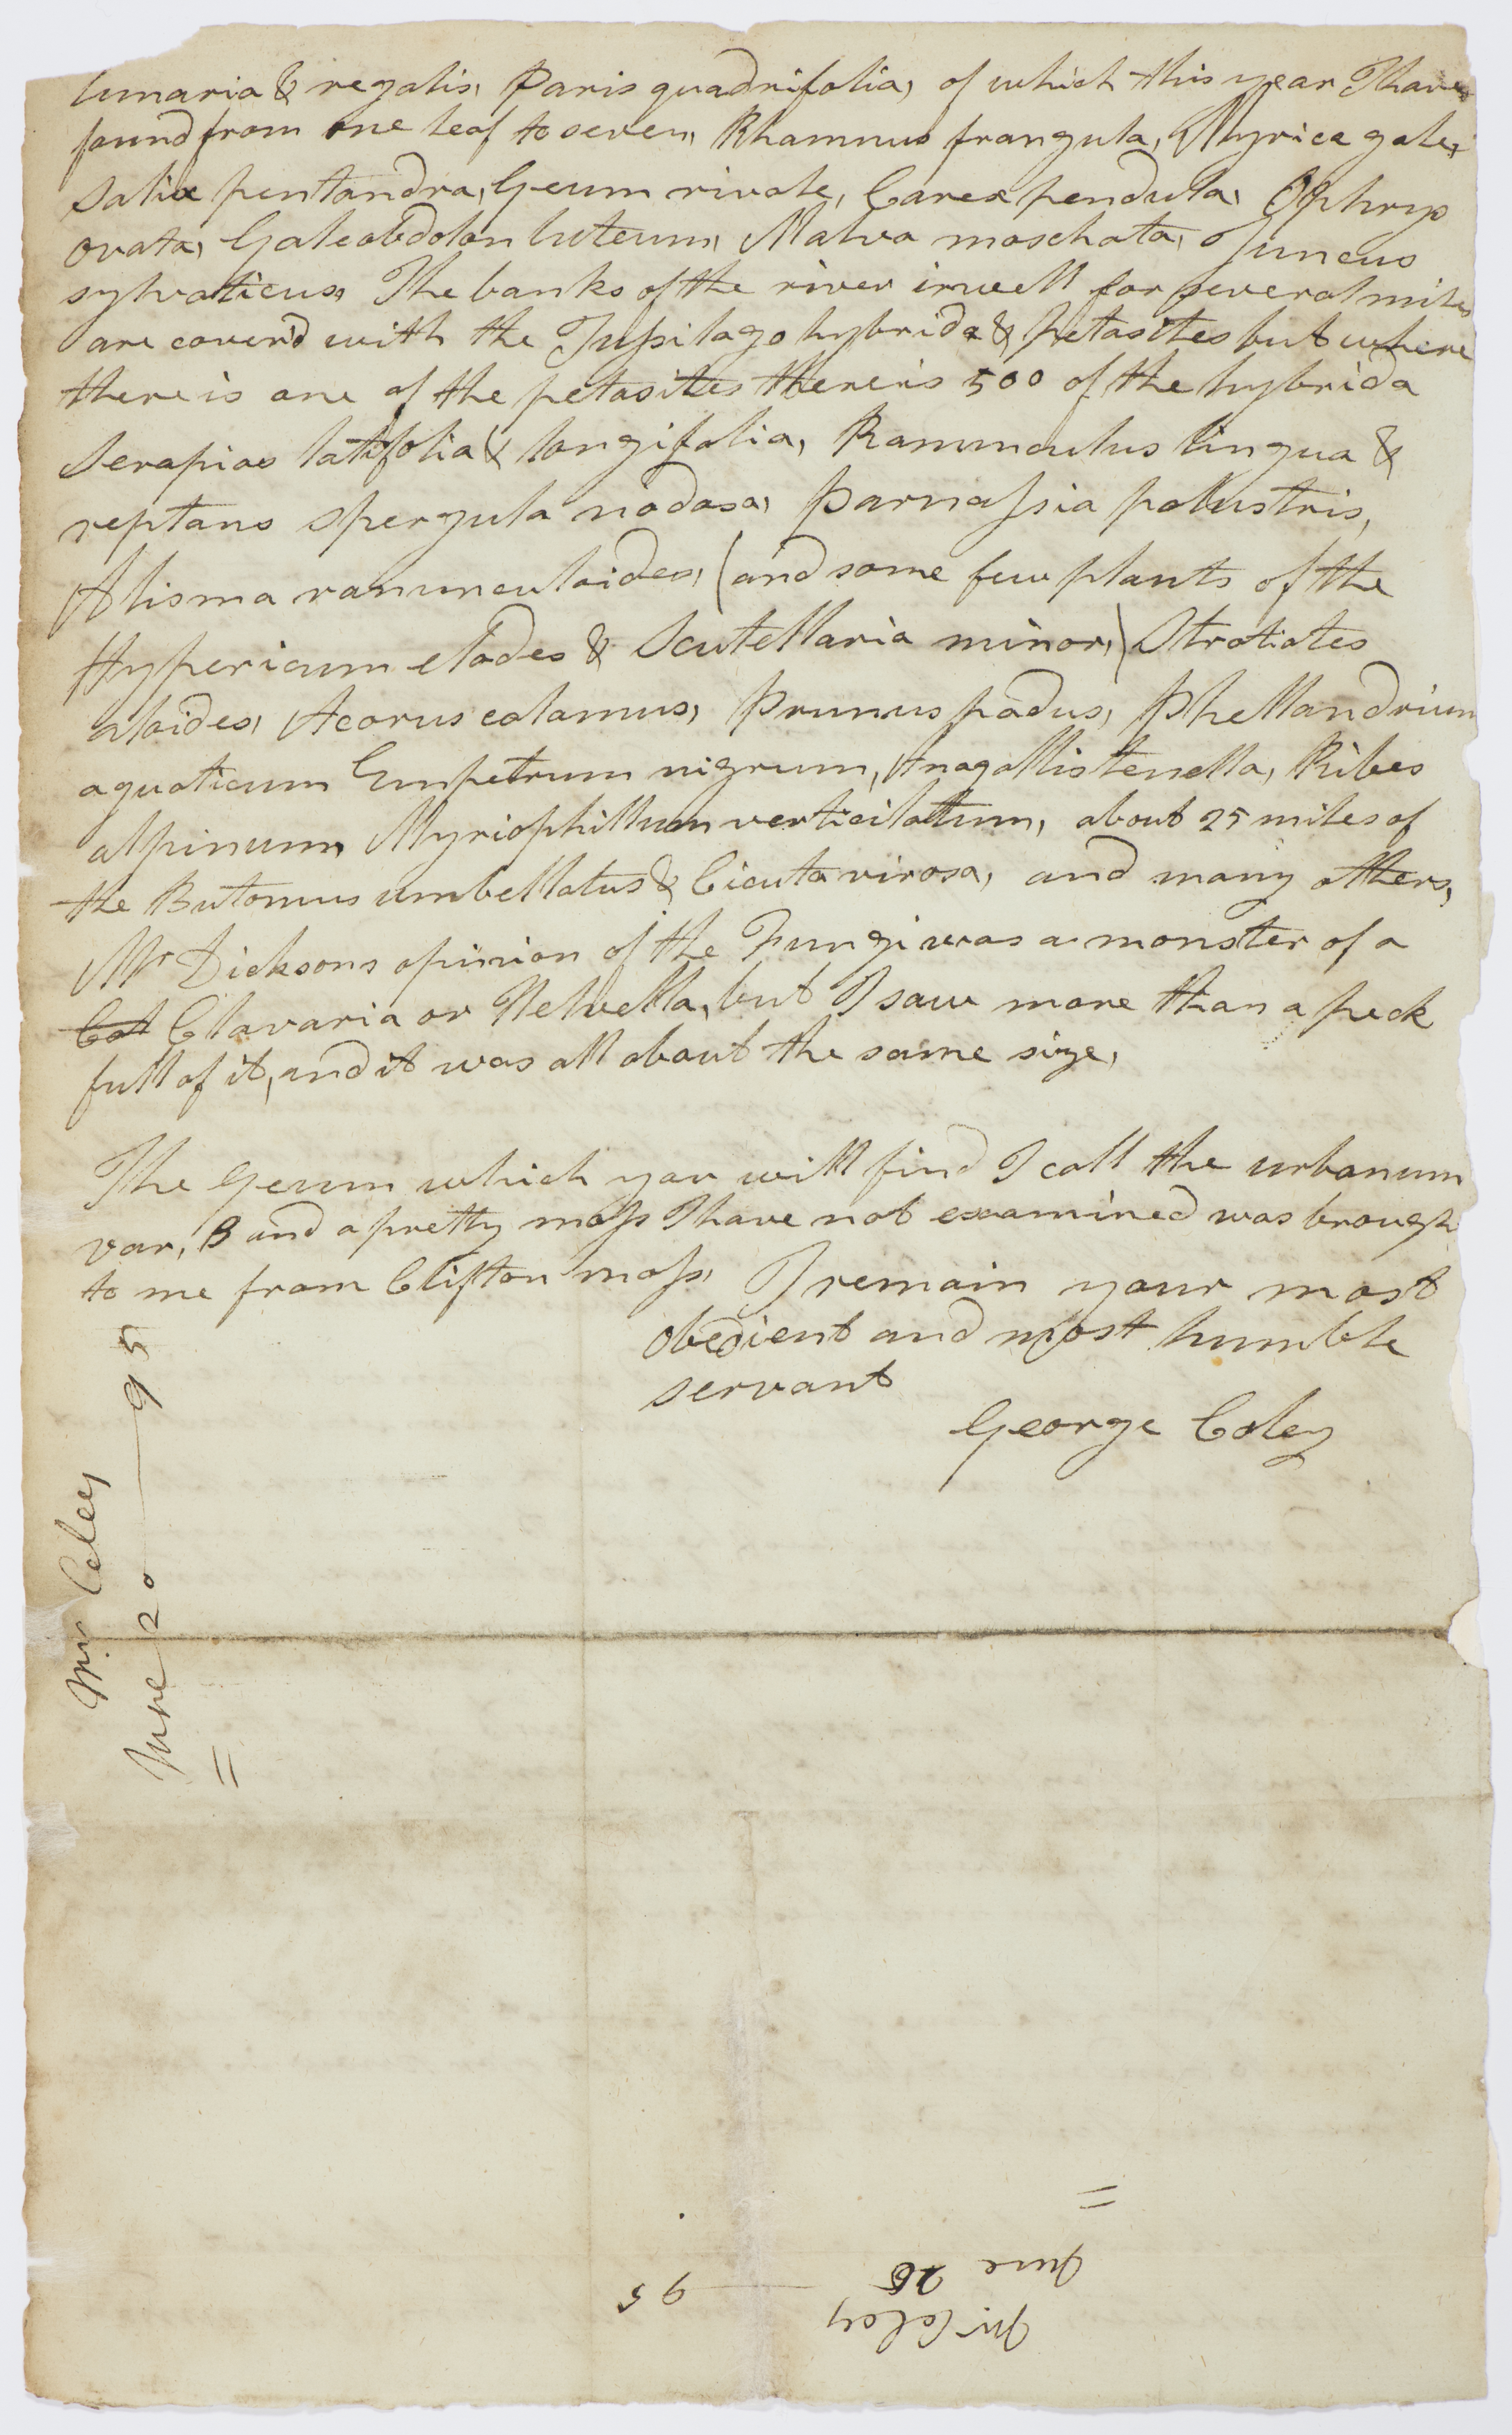 lunaria & regalis, Paris quadrifolia, of which this year I have
found from one leaf to seven, Rhamnus frangula, Myrica gale,
Salix pentandra, Geum rivale, Carex pendula, Ophrys
ovata, Galeobdolon luteum, Malva moschata, Juncus
sylvaticus, The banks of the river irwell for several miles
are coverd with the Tussilago hybrida & petasites but where
there is one of the petasites there is 500 of the hybrida
Serapias latifolia & longifolia, Ranunculus lingua &
reptans Spergula nodosa, Parnassia palustris,
Alisma ranunculoides, (and some few plants of the
Hypericum elodes & Scutellaria minor,) Stratiotes
aloides, Acorus calamus, Prunus padus, Phellandrium
aquaticum Empetrum nigrum, Anagallis tenella, Ribes
alpinum, Myriophillum verticilatum, about 25 miles of
the Butomus umbellatus & Cicuta virosa, and many others,
Mr Dicksons opinion of the Fungi was a monster of a
Cal Clavaria or Helvella, but I saw more than a peck
full of it, and it was all about the same size,
The Geum which you will find I call the urbanum
var, B and a pretty moss I have not examined was brough
to me from Clifton moss, I remain your most
obedient and most humble
servant
George Caley
Mr Caley
June 20 — 95
Mr Caley
June 26 — 95